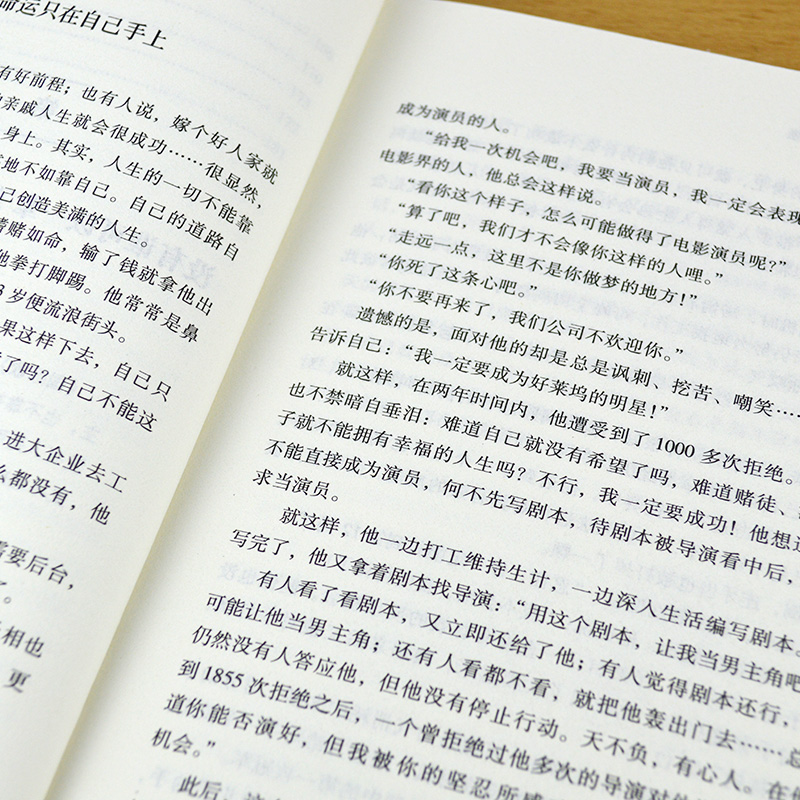 命运只在自己手上
有好前程；也有人说，嫁个好人家就
亲戚人生就会很成功……很显然，
身上。其实，人生的一切不能靠
地不如靠自己。自己的道路自
己创造美满的人生。
赌如命，输了钱就拿他出
他拳打脚踢。他常常是鼻
岁便流浪街头。
果这样下去，自己只
了吗？自己不能这
进大企业去工
么都没有，他
需要后台，
了。
相也
更
成为演员的人。
“给我一次机会吧，我要当演员，我一定会表现
电影界的人，他总会这样说。
“看你这个样子，怎么可能做得了电影演员呢？”
“算了吧，我们才不会像你这样的人哩。”
“走远一点，这里不是你做梦的地方！”
“你死了这条心吧。”
“你不要再来了，我们公司不欢迎你。”
遗憾的是，面对他的却是总是讽刺、挖苦、嘲笑……
告诉自己：“我一定要成为好莱坞的明星！”
就这样，在两年时间内，他遭受到了1000多次拒绝。
也不禁暗自垂泪：难道自己就没有希望了吗，难道赌徒、
子就不能拥有幸福的人生吗？不行，我一定要成功！他想
不能直接成为演员，何不先写剧本，待剧本被导演看中后，
求当演员。
就这样，他一边打工维持生计，一边深入生活编写剧本。
写完了，他又拿着剧本找导演：“用这个剧本，让我当男主角吧
有人看了看剧本，又立即还给了他；有人觉得剧本还行，
可能让他当男主角；还有人看都不看，就把他轰出门去……总
仍然没有人答应他，但他没有停止行动。天不负，有心人。在他
到1855次拒绝之后，一个曾拒绝过他多次的导演对他
道你能否演好，但我被你的坚忍所感
机会。”
此后，这